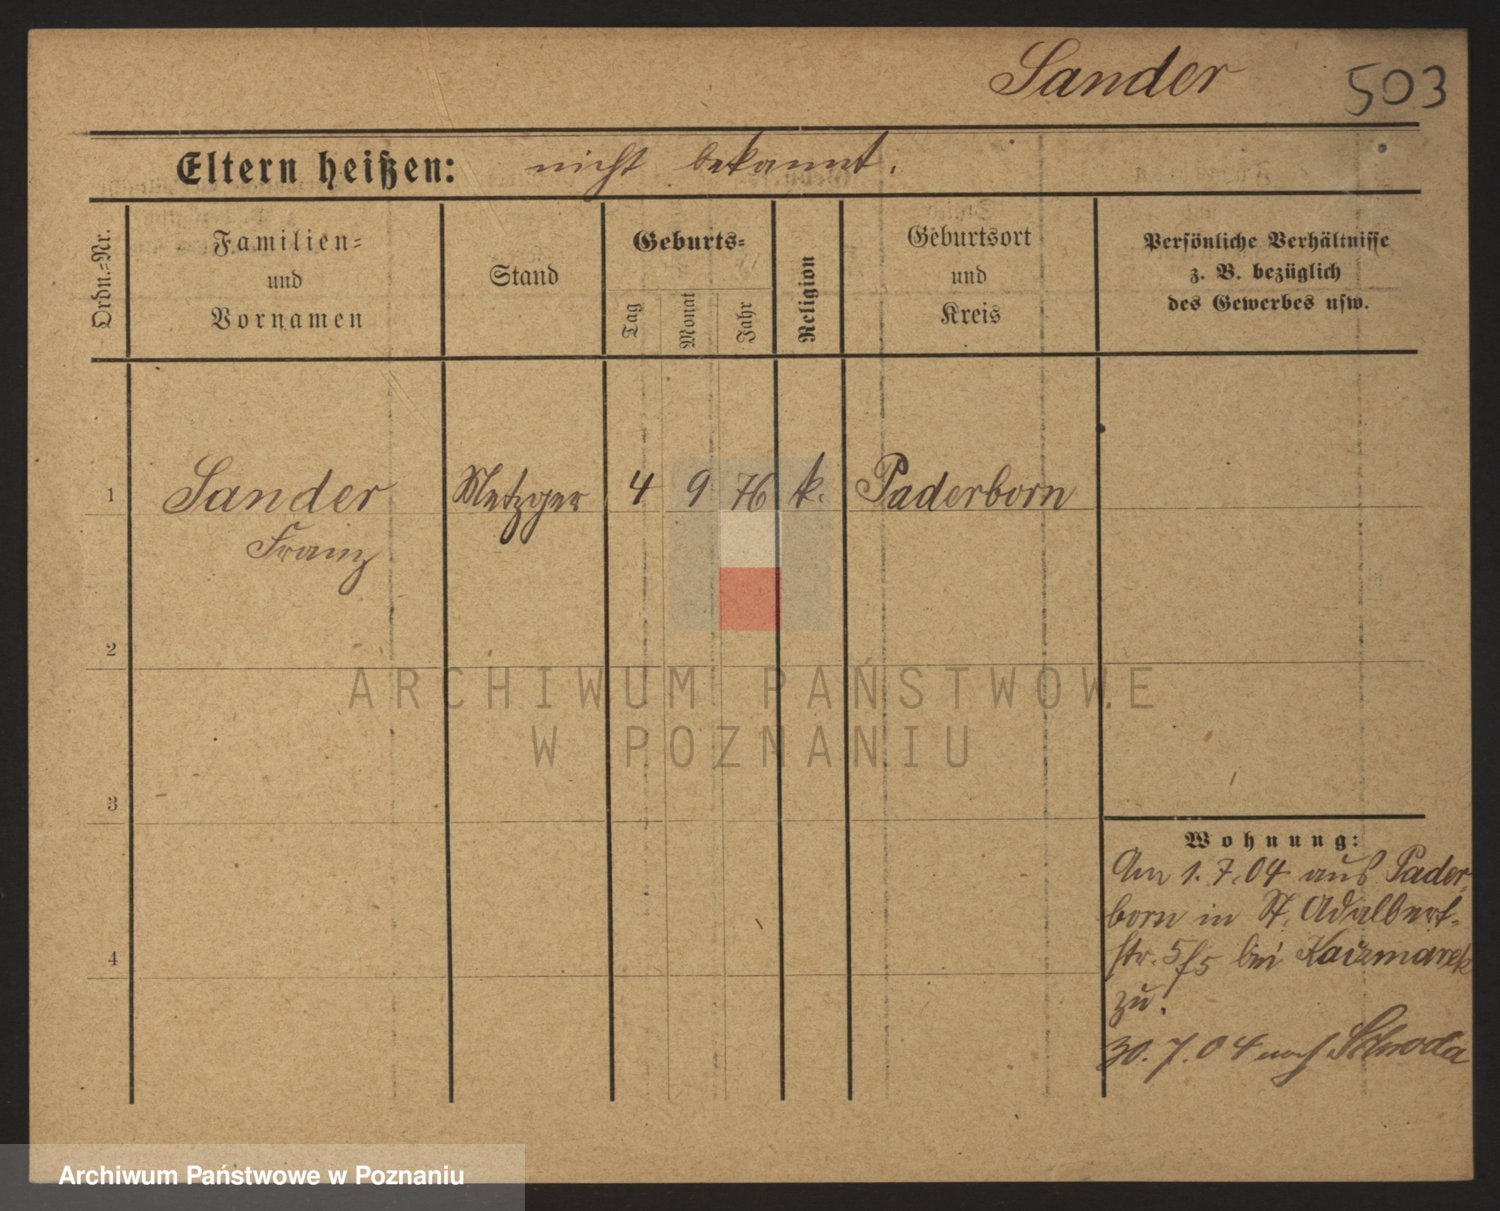 Sander 503
Eltern heißen: nicht bekannt.
Ordn.=Nr.
Familien=
und
Vornamen
Stand
Geburts=
Tag
Monat
Jahr
Religion
Geburtsort
und
Kreis
Persönliche Verhältnisse
z. B. bezüglich
des Gewerbes usw.
1 Sander Metzger 4 9 76 k. Paderborn
Franz
2
ARCHIWUM PAŃSTWOWE
W POZNANIU
3
Wohnung:
Am 1.7.04 aus Pader-
born in St. Adalbert-
str. 5/5 bei Kaczmarek
4
zu.
30.7.04 nach Schroda
Archiwum Państwowe w Poznaniu